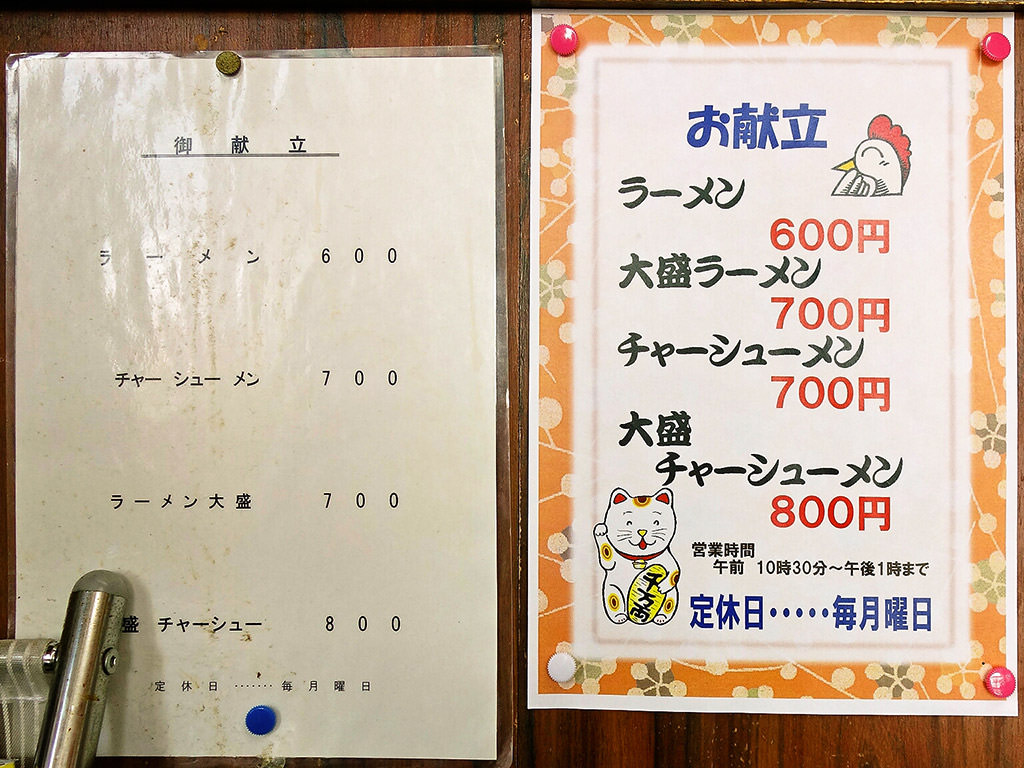 御献立
ラーメン 600
チャーシューメン 700
ラーメン大盛 700
盛 チャーシュー 800
定休日 ‥‥‥ 毎月曜日
お献立
ラーメン
600円
大盛ラーメン
700円
チャーシューメン
700円
大盛
チャーシューメン
800円
営業時間
午前 10時30分～午後1時まで
定休日‥‥‥毎月曜日
千万両